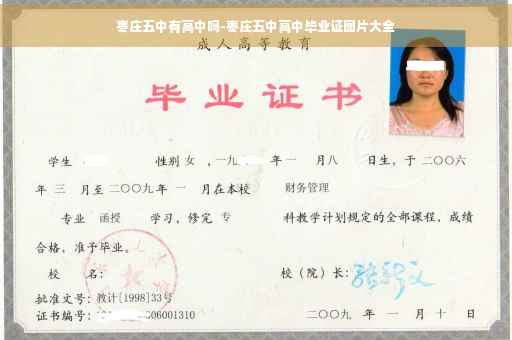 枣庄五中有高中吗-枣庄五中高中毕业证图片大全
成人高等教育
毕业证书
学生 性别 女 ,一九 年 一 月八 日生，于二〇〇六
年 三 月至二〇〇九年 一 月在本校 财务管理
专业 函授 学习，修完 专 科教学计划规定的全部课程，成绩
合格，准予毕业。
校 名： 校（院）长：
批准文号：教计[1998]33号
证书编号： 606001310 二〇〇九 年 一 月 十 日